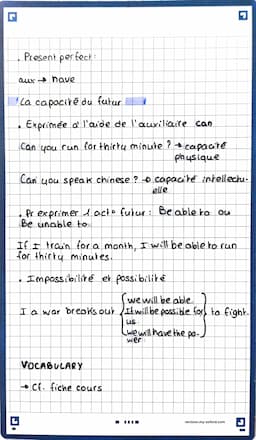 . Present perfect:
aux → have
La capacité du futur
. Exprimée à l'aide de l'auxiliaire can
Can you run for thirty minute ? → capacité
physique
Can you speak chinese ? → capacité intellectu-
elle
. Pr exprimer 1 acto futur : Be able to ou
Be unable to.
If I train for a month, I will be able to run
for thirty minutes.
. Impossibilité et possibilité
we will be able
I a war breaks out It will be possible for to fight.
us
we will have the po-
wer
VOCABULARY
→ Cf. fiche cours